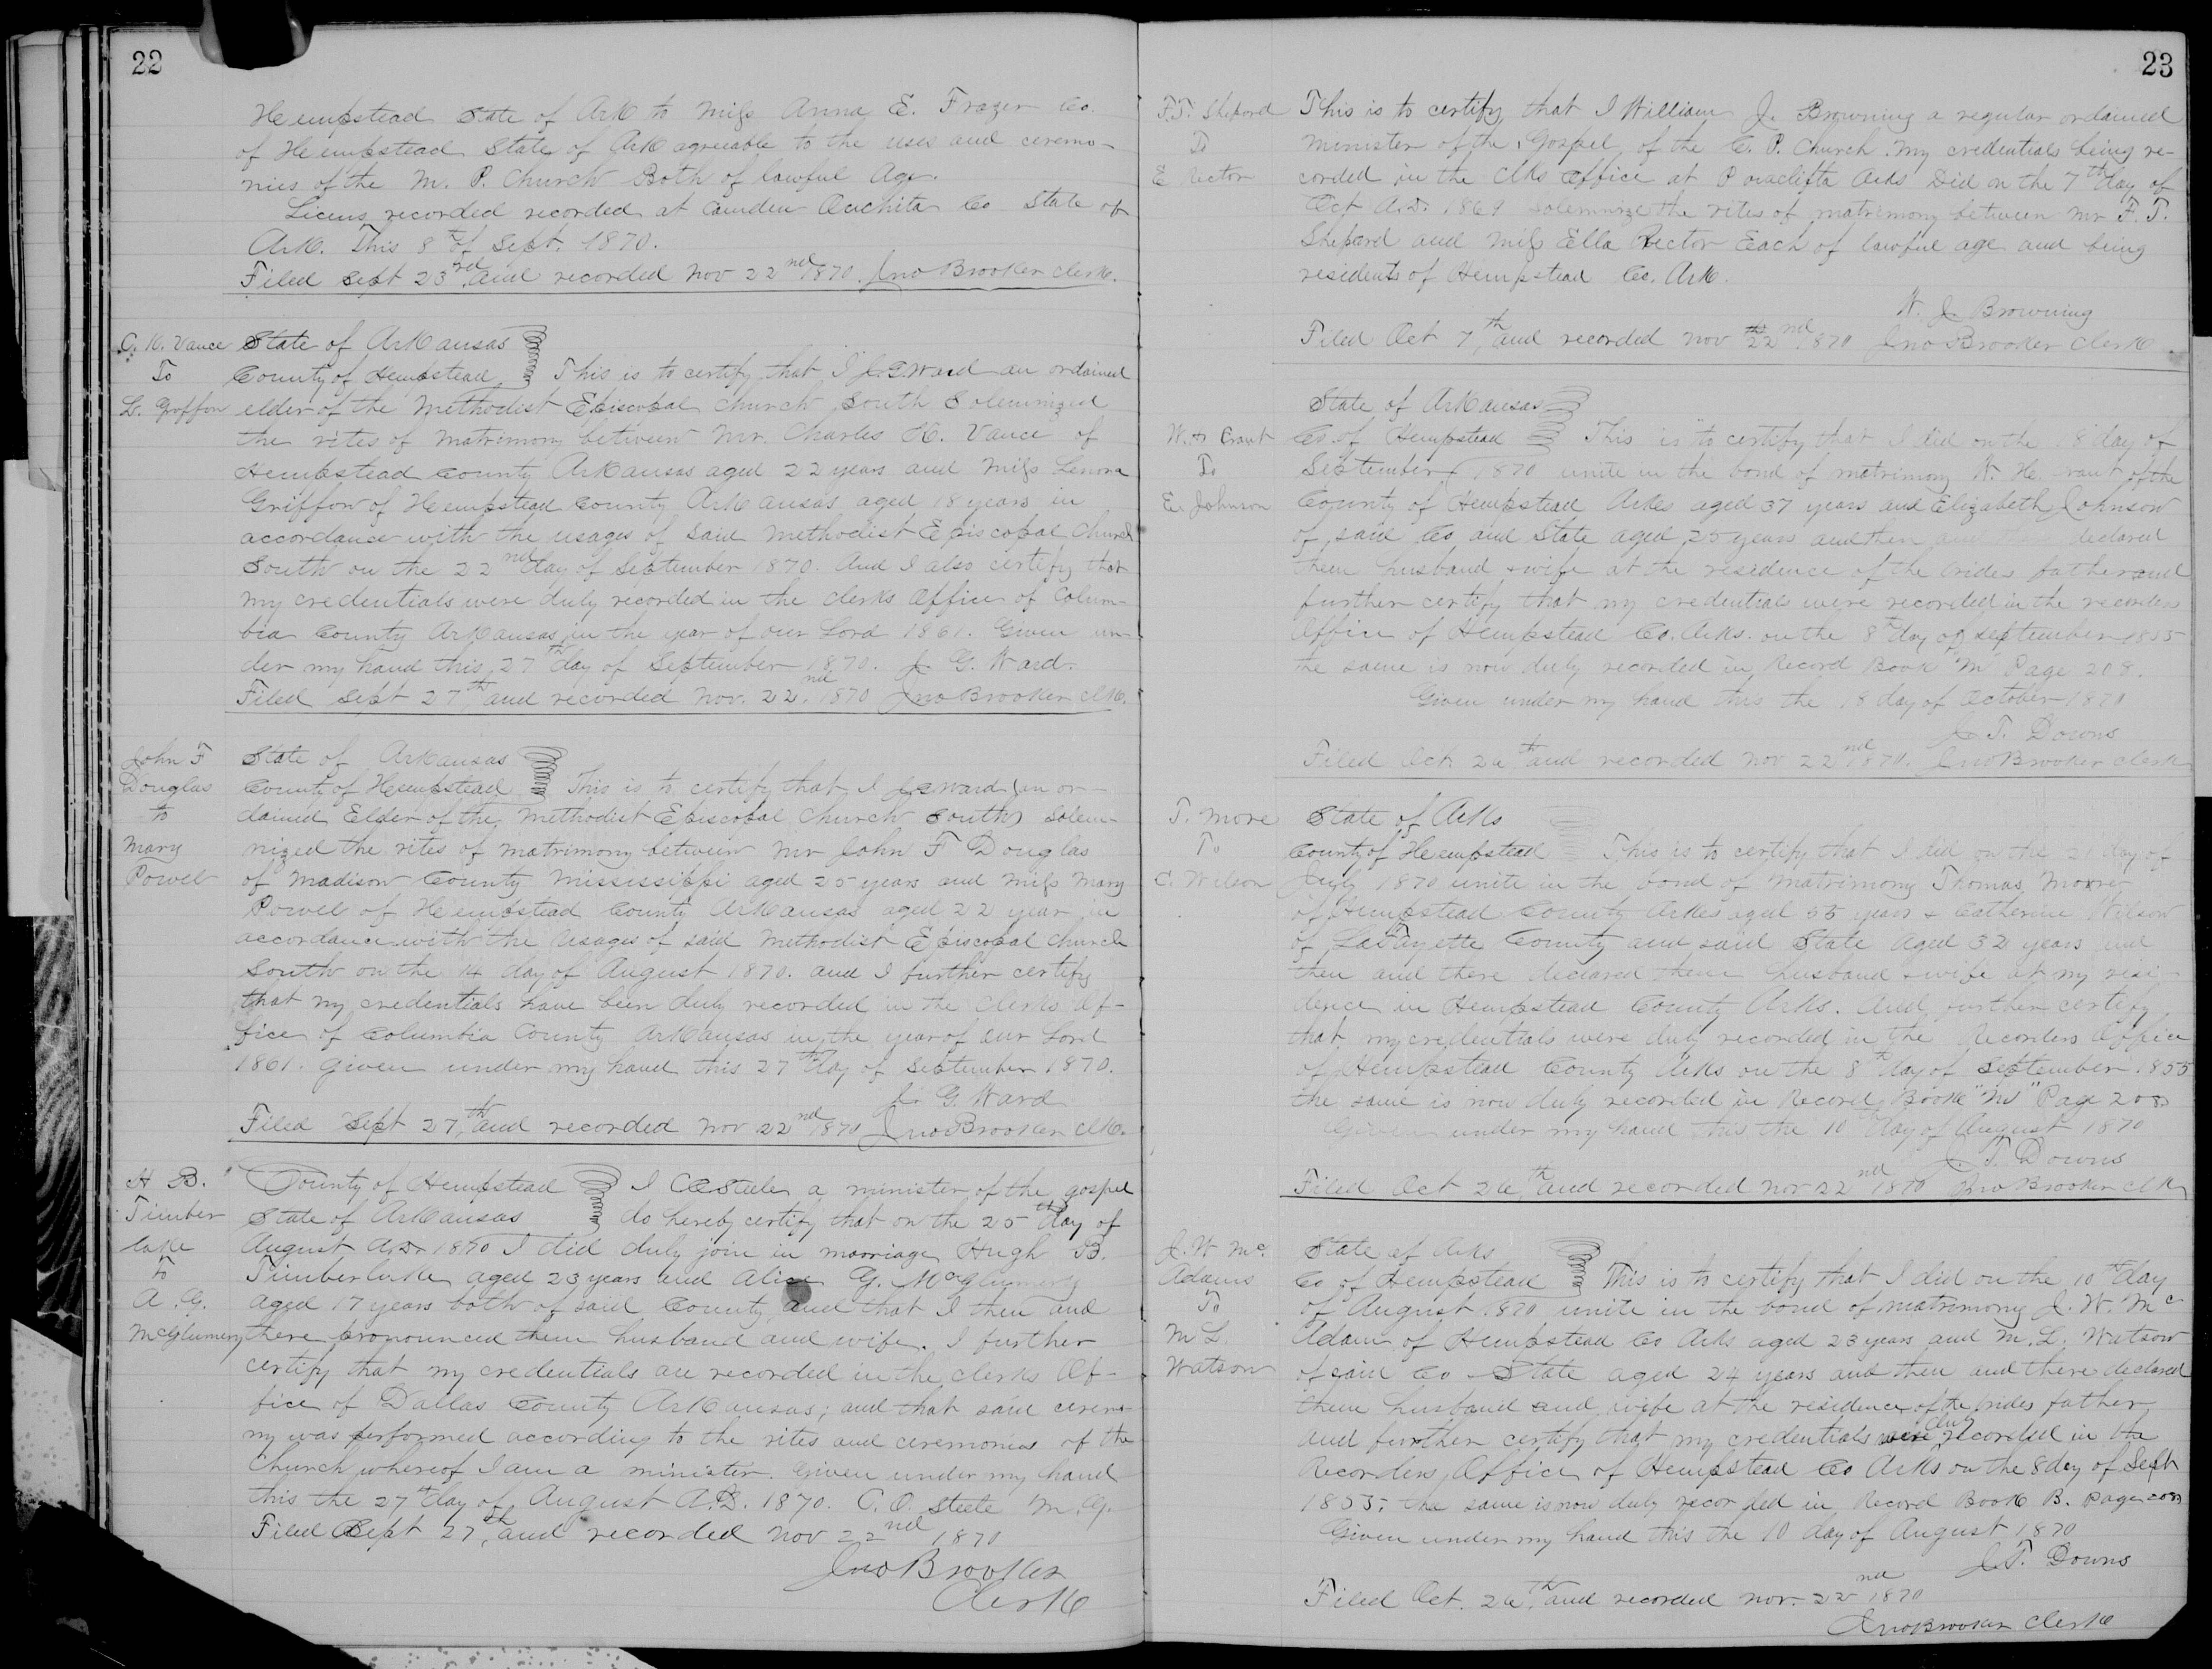 22
Hempstead State of Ark to Miss Anna E. Frazer Co.
of Hempstead State of Ark agreeable to the uses and ceremo-
nies of the M. P. Church Both of lawful Age.
Licens recorded recorded at Camden Ouchita Co State of
Ark. This 8th of Sept. 1870.
Filed Sept 23rd, and recorded Nov 22nd 1870. Jno Brooker Clerk.
C. H. Vance
To
L. Groffon
State of Arkansas
County of Hempstead This is to certify that I J. G. Ward an ordained
elder of the Methodist Episcopal Church South Solemnized
the rites of matrimony between Mr. Charles H. Vance of
Hempstead County Arkansas aged 22 years and Miss Lenora
Griffow of Hempstead County Arkansas aged 18 years in
accordance with the usages of said Methodist Episcopal Church
South on the 22nd day of September 1870. And I also certify that
my credentials were duly recorded in the Clerks Office of Colum-
bia County Arkansas in the year of our Lord 1861. Given un-
der my hand this 27th day of September 1870. J. G. Ward.
Filed Sept 27th, and recorded Nov. 22nd. 1870 Jno Brooker Clk.
John F
Douglas
to
Mary
Powel
State of Arkansas
County of Hempstead This is to certify that I J G Ward (an or-
dained Elder of the Methodist Episcopal Church South) Solem-
nized the rites of matrimony between Mr John F Douglas
of Madison County Mississippi aged 25 years and Miss Mary
Powel of Hempstead County Arkansas aged 22 year in
accordance with the Usages of said Methodist Episcopal Church
South on the 14 day of August 1870. and I further certify
that my credentials have been duly recorded in the Clerks Of-
fice of Columbia County Arkansas in the year of our Lord
1861. given under my hand this 27th day of September 1870.
J. G. Ward
Filed Sept 27th, and recorded Nov 22nd 1870 Jno Brooker Clk.
H B.
Timber
lake
To
A. G.
McGlumery
County of Hempstead I C O Steele a minister of the gospel
State of Arkansas do hereby certify that on the 25th day of
August A.D. 1870 I did duly join in marriage Hugh B.
Timberlake aged 23 years and Alice G. McGlumery
aged 17 years both of said County and that I then and
there pronounced them husband and wife. I further
certify that my credentials are recorded in the Clerks Of-
fice of Dallas County Arkansas; and that said cerem-
ny was performed according to the rites and ceremonies of the
Church whereof I am a minister. Given under my hand
this the 27th day of August A.D. 1870. C. O. Steele M. G.
Filed Sept 27th, and recorded Nov 22nd 1870
Jno Brooker
Clerk
23
F. T. Shepard
To
E Rector
This is to certify that I William J. Browning a regular ordained
Minister of the Gospel of the C. P. Church. My credentials being re-
corded in the Clks office at Paraclifta Arks Did on the 7th day of
Oct A.D. 1869 solemnize the rites of matrimony between Mr F. T.
Shepard and Miss Ella Rector Each of lawful age and being
residents of Hempstead Co. Ark.
W. J. Browning
Filed Oct 7th, and recorded Nov 22nd 1870 Jno Brooker Clerk.
W. H Crant
To
E. Johnson
State of Arkansas
Co of Hempstead This is to certify that I did on the 18 day of
September 1870 unite in the bond of matrimony W. H. rant of the
County of Hempstead Arks aged 37 years and Elizabeth Johnson
of said Co and State aged 25 years and then and declared
them husband & wife at the residence of the brides father and
further certify that my credentials were recorded in the recorders
Office of Hempstead Co. Arks. on the 8th day of September 1855
the same is now duly recorded in Record Book "M" Page 208.
Given under my hand this the 18 day of October 1870
J. T. Downs
Filed Oct 26th and recorded Nov 22nd 1870. Jno Brooker Clerk
T. More
To
C. Wilson
State of Arks
County of Hempstead This is to certify that I did on the 21 day of
July 1870 unite in the bond of matrimony Thomas Moore
of Hempstead County Arks aged 55 years & Catherine Wilson
of LaFayette County and said State aged 32 years and
then and there declared them husband & wife at my resi-
dence in Hempstead County Arks. And further certify
that my credentials were duly recorded in the Recorders Office
of Hempstead County Arks on the 8th day of September 1855
the same is now duly recorded in Record Book "M" Page 208
Given under my hand this the 10th day of August 1870
J. T. Downs
Filed Oct 26th, and recorded Nov 22nd 1870 Jno Brooker Clk
J. W Mc.
Adams
To
M L.
Watson
State of Arks
Co of Hempstead This is to certify that I did on the 10th day
of August 1870 unite in the bond of matrimony J. W. Mc
Adam of Hempstead Co Arks aged 23 years and M. L. Watson
of said Co & State aged 24 years and then and there declared
them husband and wife at the residence of the brides father,
and further certify that my credentials were duly recorded in the
Recorders Office of Hempstead Co Arks on the 8 day of Sept
1855; the same is now duly recorded in Record Book B. page
Given under my hand this the 10 day of August 1870
J. T. Downs
Filed Oct. 26th, and recorded Nov. 22nd 1870
Jno Brooker Clerk